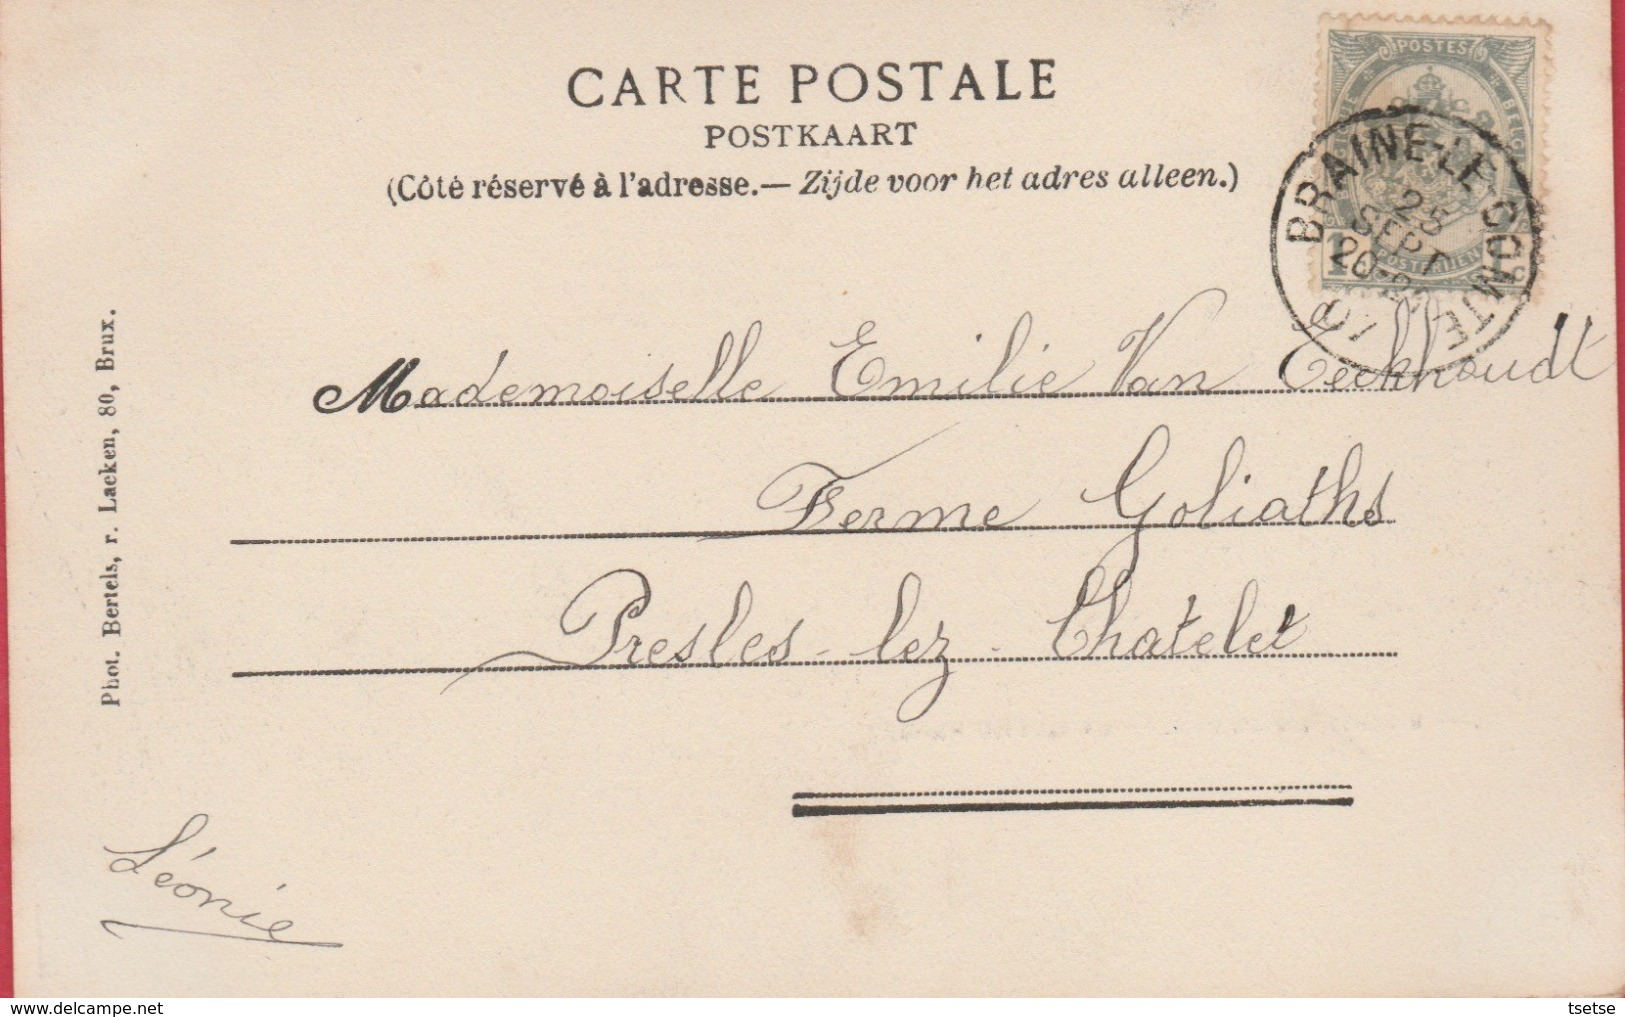 CARTE POSTALE
POSTKAART
(Côté réservé à l'adresse.— Zijde voor het adres alleen.)
POSTES
BRAINE-LE-COMTE
25
SEPT
20-21
07
Mademoiselle Emilie Van Eeckhoudt
Ferme Goliaths
Presles-lez-Chatelet
Léonie
Phot. Bertels, r. Laeken, 80, Brux.
delcampe.net
tsetse